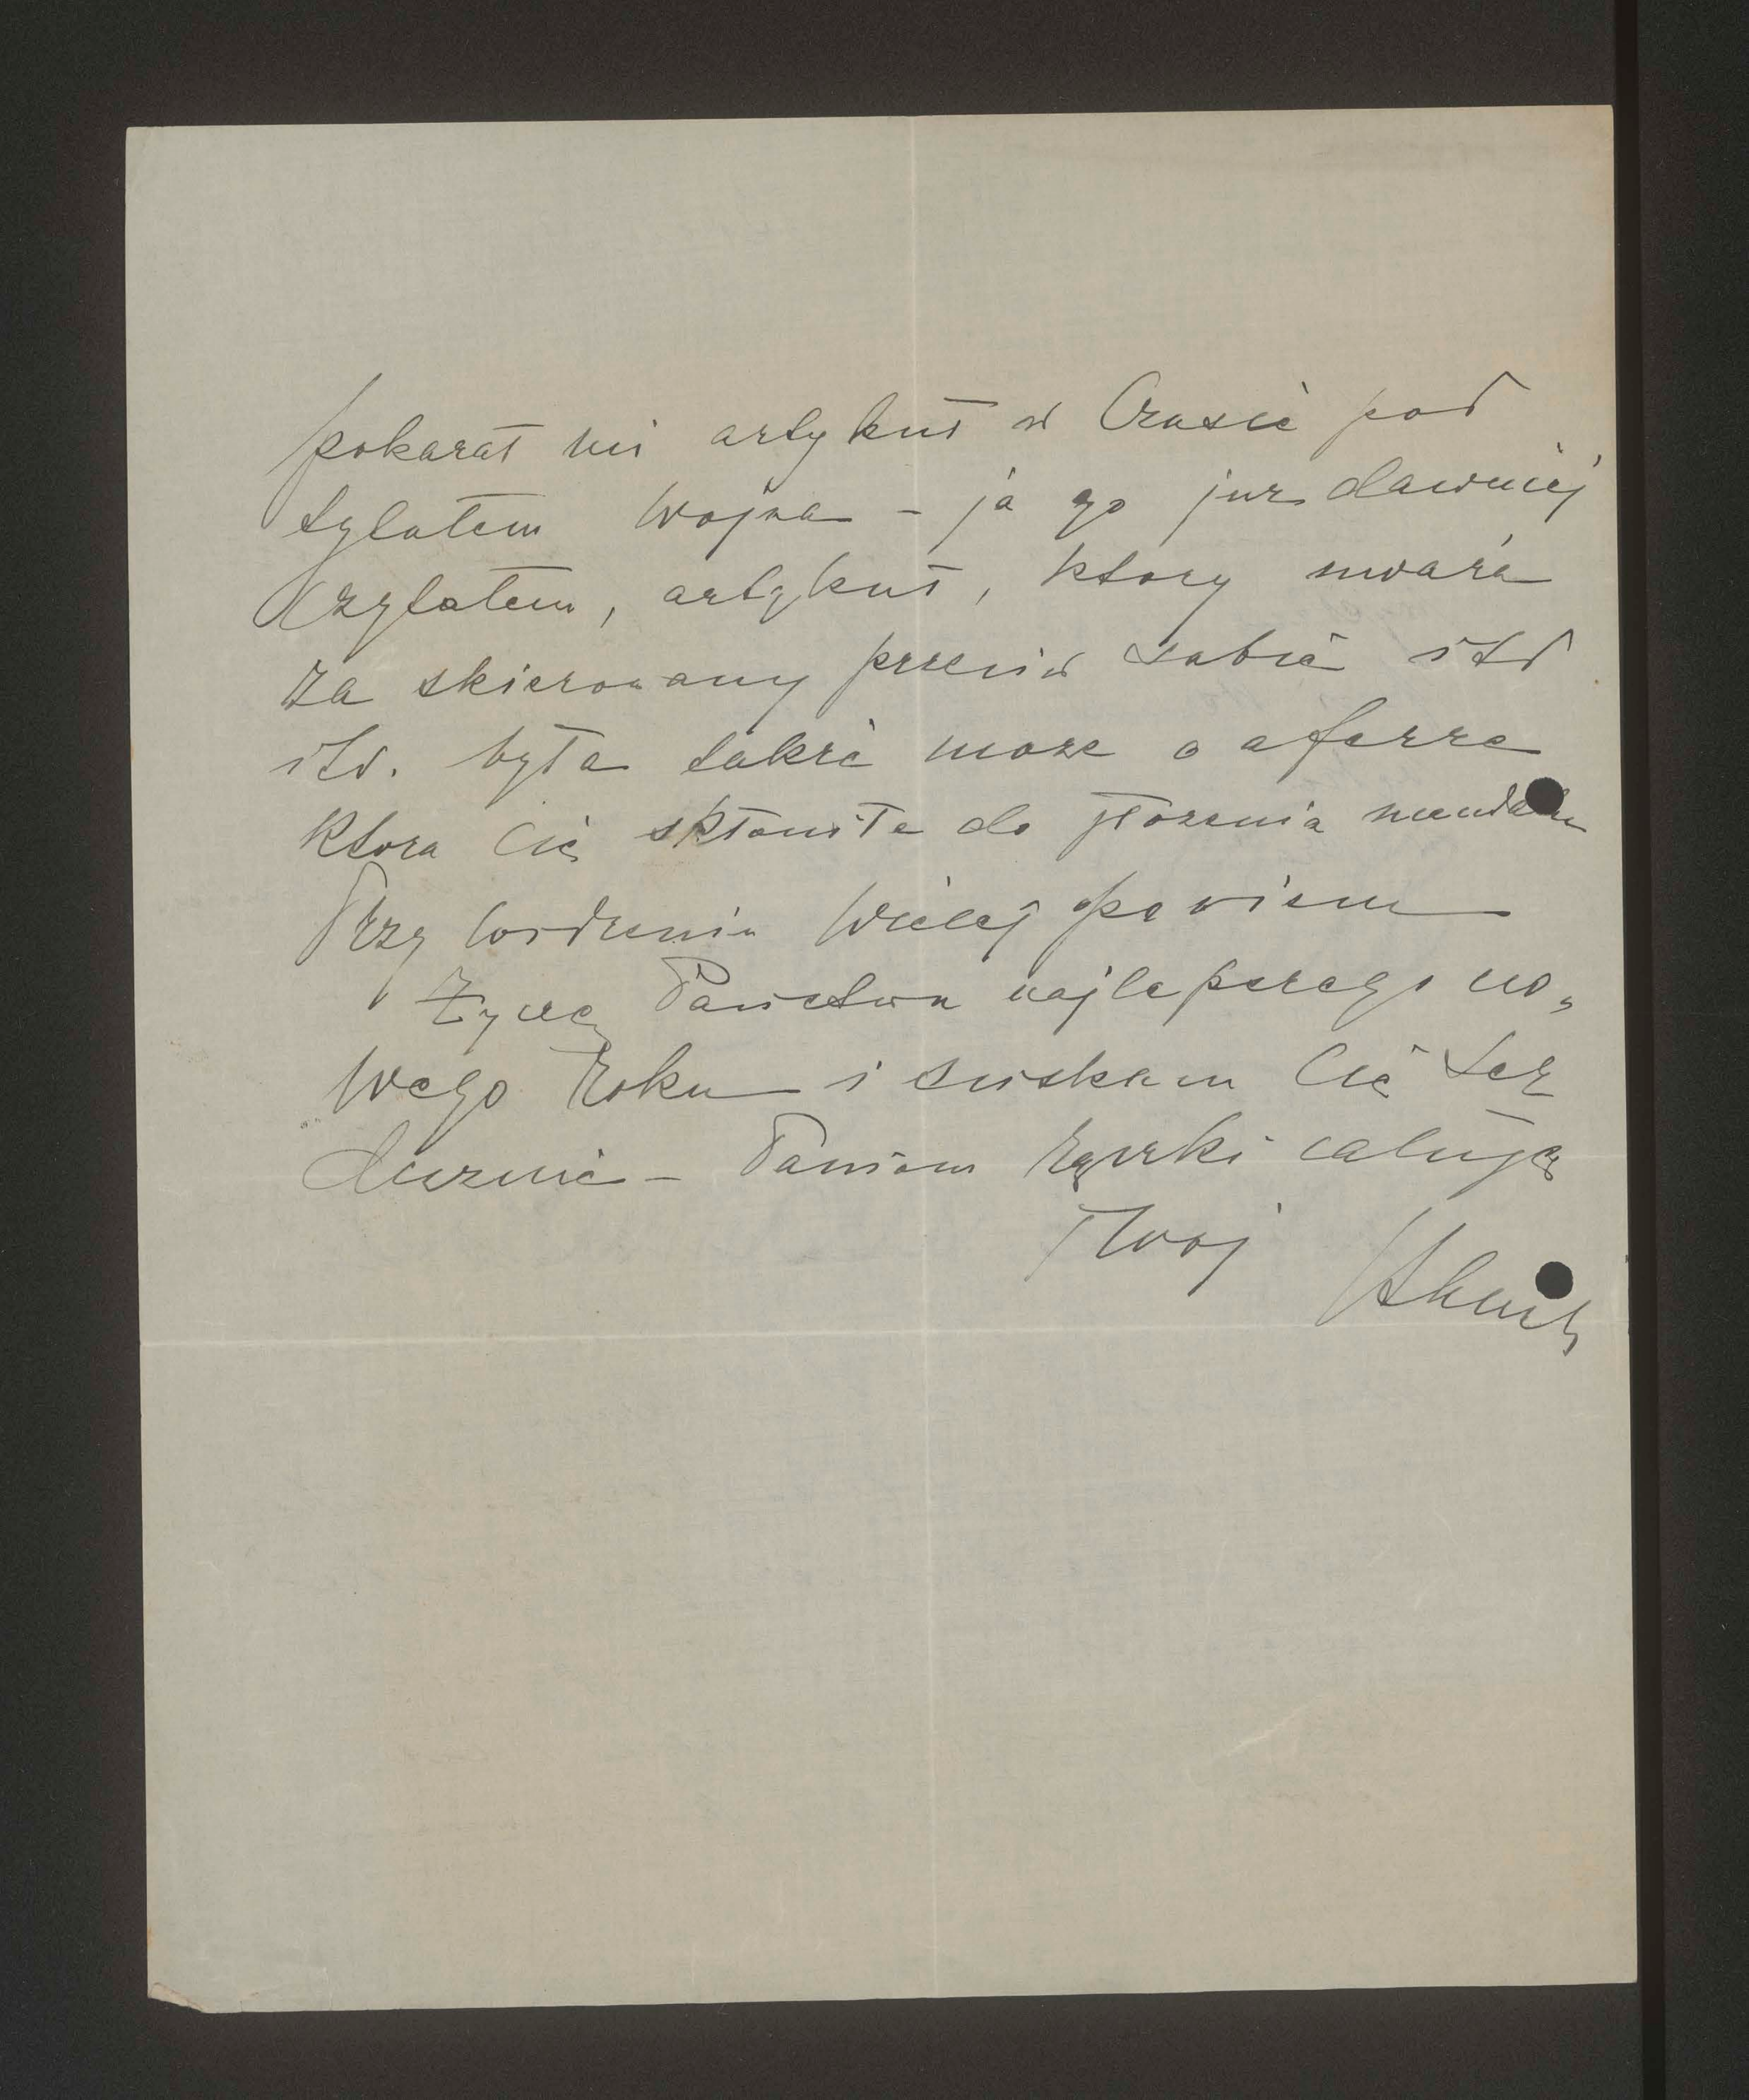 pokazał mi artykuł w Czasie pod
tytułem Wojna - ja go juz dawniej
czytałem, artykuł, ktory uwaza
za skierowany przeciw sobie itd
itd. była takze moze o aferze
ktora Cię skłoniła do złozenia mandatu
Przy widzeniu więcej powiem
Zyczę Państwu najlepszego no„
wego Roku i sciskam Cię Ser
decznie - Paniom rączki całuję
Twoj